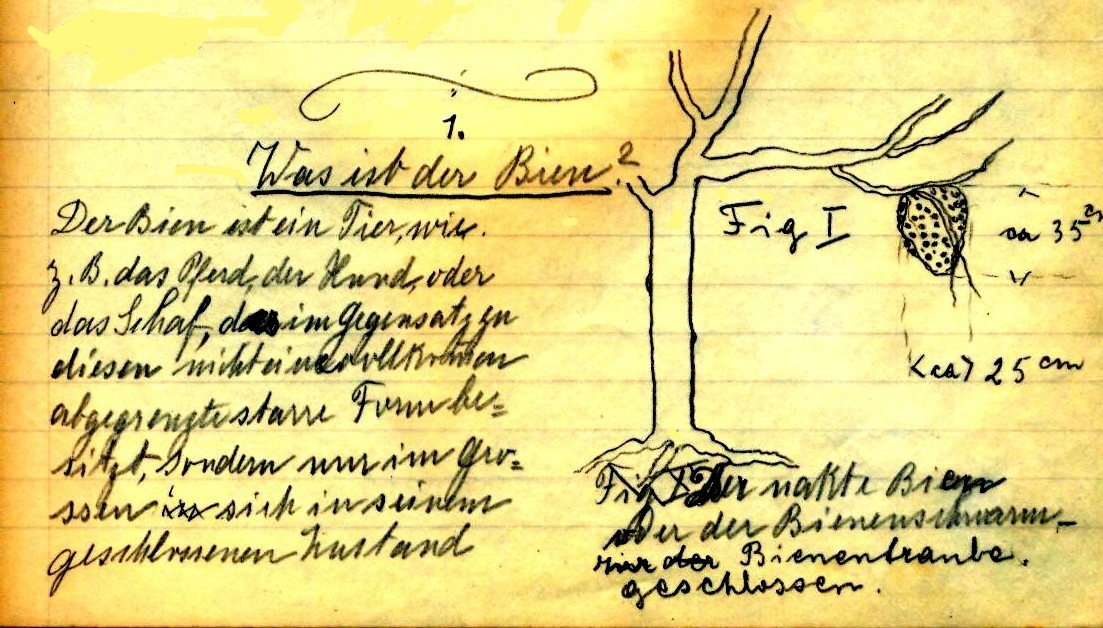 1.
Was ist der Bien?
Der Bien ist ein Tier, wie.
z. B. das Pferd, der Hund, oder
das Schaf, das im Gegensatz zu
diesen nicht eine vollkommen
abgegrenzte starre Form be=
sitzt, sondern nur im Gro=
ssen sich in seinem
geschlossenen Zustand
Fig I
ca 35 cm
<ca> 25 cm
Fig I Der nakte Bien
Der der Bienenschwarm
zur der Bienentraube.
geschlossen.